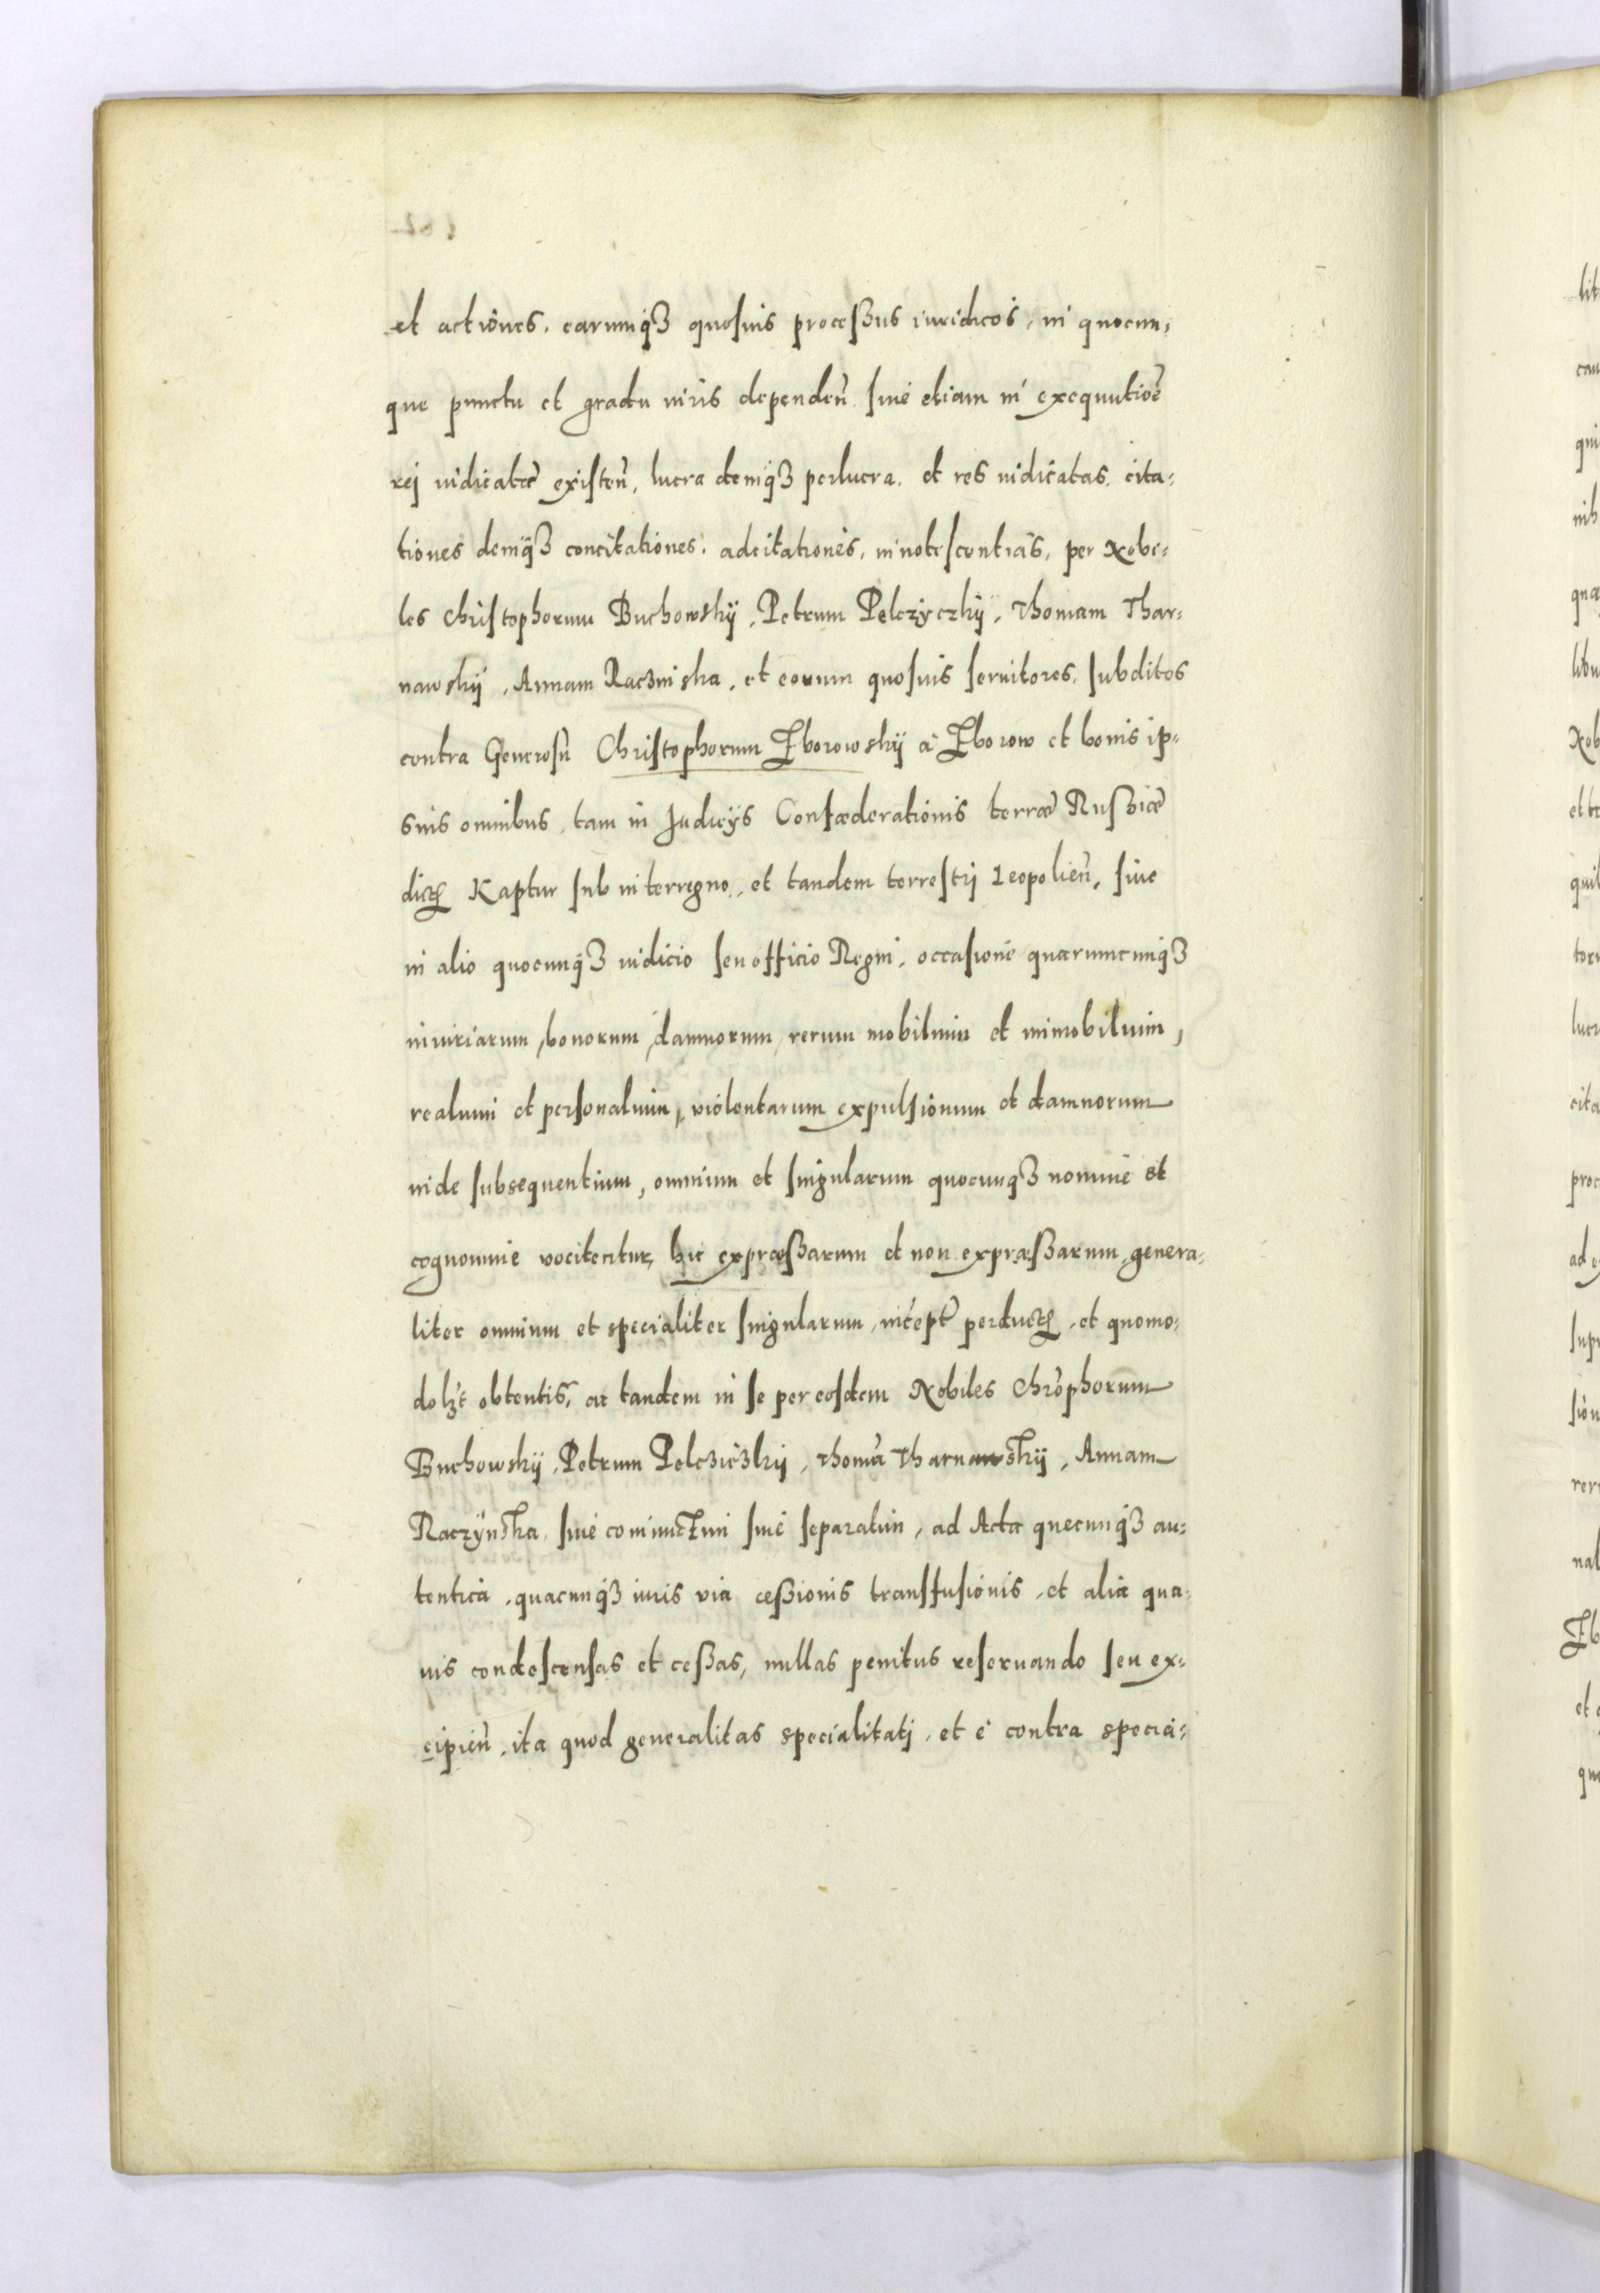 et actiones, earumq́ȝ quosuis processus iuridicos, in quocun⸗
que punctu et gradu iuris dependeñ siue etiam in exequutioẽ
rej iudicatæ existeñ, lucra deniq́ȝ perlucra, et res iudicatas, cita⸗
tiones deniq́ȝ concitationes, adcitationes, innotescentias, per Nobi⸗
les Christophorum Buchowskÿ, Petrum Pelczyczkÿ, Thomam Thar⸗
nawskÿ, Annam Raczinska, et eorum quosuis seruitores, subditos
contra Generosũ Christophorum Zborowskÿ à Zborow et bonis ip⸗
sius omnibus, tam in Judicÿs Confœderationis terræ Russiæ
dictꝝ Kaptur sub interregno, et tandem terrestrj Leopolieñ, siue
in alio quocunq́ȝ iudicio seu officio Regni, occasione quarumcunq́ȝ
iniuriarum, bonorum, damnorum, rerum mobilium et immobilium,
realium et personalium, violentarum expulsionum et damnorum
inde subsequentium, omnium et singularum quocunq́ȝ nomine et
cognomine vocitentur, hic expræssarum et non expræssarum, genera⸗
liter omnium et specialiter singularum, incept̃ perductꝝ, et quomo⸗
dolȝt̃ obtentis, ac tandem in se per eosdem Nobiles Chr̃ophorum
Buchowskÿ, Petrum Pelcziczkÿ, Thomã Tharnawskÿ, Annam
Raczÿnska, siue coniunctim siue separatim, ad Acta quecunq́ȝ au⸗
tentica, quacunq́ȝ iuris via cessionis transfusionis, et alia qua⸗
uis condescensas et cessas, nullas penitus reseruando seu ex⸗
cipieñ, ita quod generalitas specialitatj, et è contra specia⸗